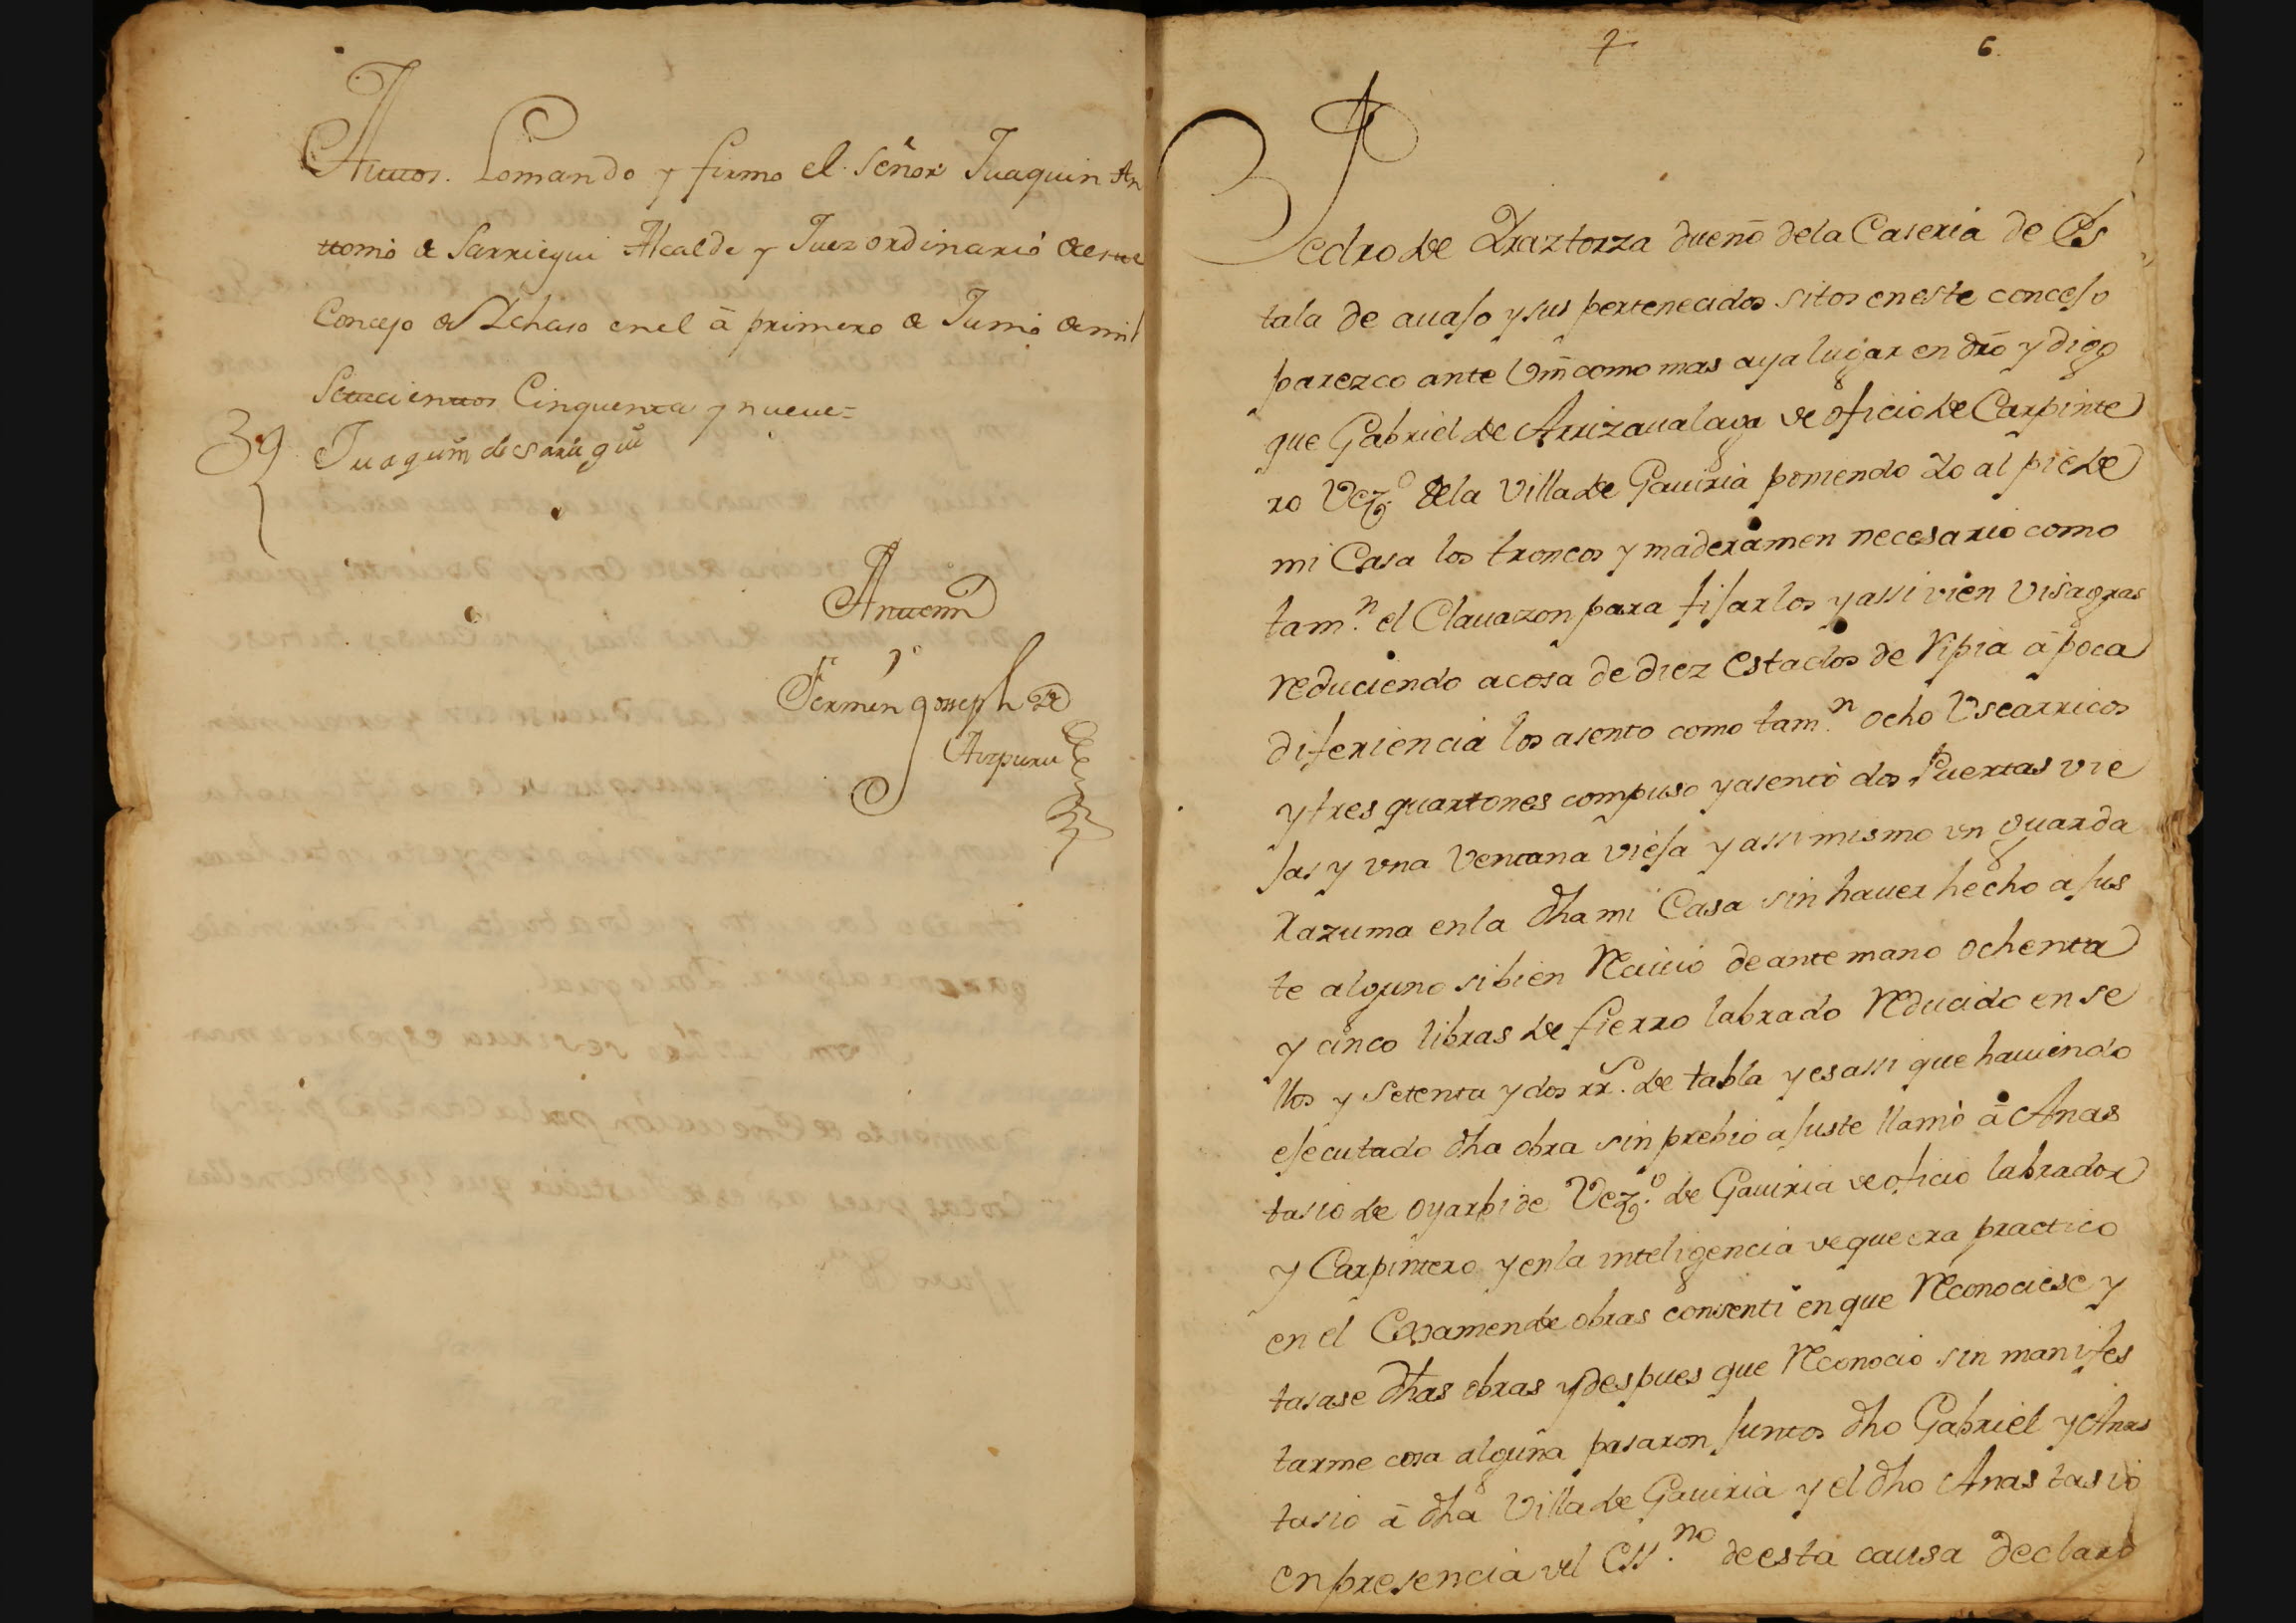 Auttos. Lomando y firmo el Señor Juaquin An
ttonio de Sarriegui Alcalde y Juez ordinario de este
Concejo de Ichaso en el â primero de Junio de mil
Settecienttos Cinquenta y nueve=
Juaquin de Sariegui
Anttemi
Fermin Joseph de
Aizpuru
6
Pedro de Yraztorza dueño dela Caseria de Es
tala de auajo y sus pertenecidos sitos en este concejo
parezco ante Vm̃ como mas aya lugar en dr̃o y digo
que Gabriel de Arrizaualaga de oficio de Carpinte
ro Vezº dela Villa de Gauiria poniendo Yo al pie de
mi Casa los troncos y maderamen necesario como
tam.n el Clauazon para fijarlos y assi vien Visagras
reduciendo acosa de diez Estados de Ripia â poca
diferiencia los asento como tam.n ocho Vscarricos
y tres quartones compuso y asento dos Puertas vie
jas y vna Ventana vieja y assimismo vn guarda
Razuma en la dha mi Casa sin hauer hecho ajus
te alguno sibien Reciuio de ante mano ochenta
y cinco libras de fierro labrado Reducido en se
llos y Setenta y dos rr.s de tabla y es assi que hauiendo
ejecutado dha obra sin prebio ajuste llamò â Anas
tasio de oyarbide Vez.º de Gauiria de oficio labrador
y Carpintero y en la inteligencia de que era practico
en el Examen de obras consenti en que Reconociese y
tasase dhas obras y despues que Reconocio sin manifes
tarme cosa alguna pasaron juntos dho Gabriel y Anas
tasio â dha Villa de Gauiria y el dho Anastasio
en presencia del Ess.no de esta causa declarò